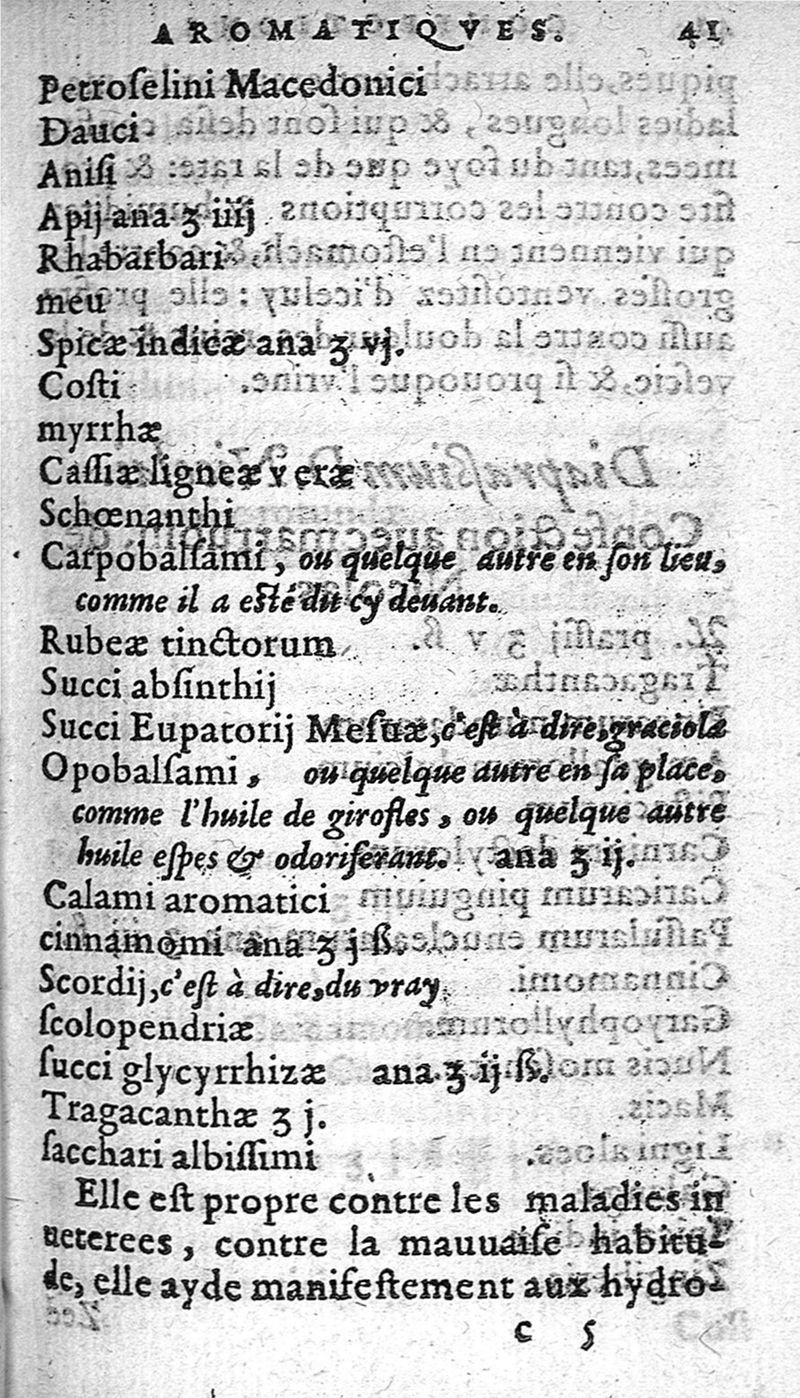 AROMATIQVES. 41
Petroſelini Macedonici
Dauci
Aniſi
Apij ana ʒ iiij
Rhabarbari
meu
Spicæ indicæ ana ʒ vj.
Coſti
myrrhæ
Caſſiæ ligneæ veræ
Schœnanthi
Carpobalſami, ou quelque autre en ſon lieu,
comme il a eſté dit cy deuant.
Rubeæ tinctorum
Succi abſinthij
Succi Eupatorij Meſuæ, c'eſt à dire, graciola
Opobalſami, ou quelque autre en ſa place,
comme l'huile de girofles, ou quelque autre
huile eſpes & odoriferant. ana ʒ ij.
Calami aromatici
cinnamomi ana ʒ j ß.
Scordij, c'eſt à dire, du vray
ſcolopendriæ
ſucci glycyrrhizæ ana ʒ ij ß.
Tragacanthæ ʒ j.
ſacchari albiſſimi
Elle eſt propre contre les maladies in
ueterees, contre la mauuaiſe habitu-
de, elle ayde manifeſtement aux hydro-
c 5